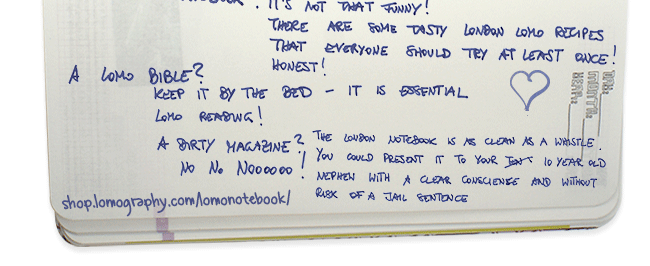 IT'S NOT THAT FUNNY!
THERE ARE SOME TASTY LONDON LOMO RECIPES
THAT EVERYONE SHOULD TRY AT LEAST ONCE!
HONEST!
A LOMO BIBLE?
KEEP IT BY THE BED - IT IS ESSENTIAL
LOMO READING!
A DIRTY MAGAZINE?
NO NO NOOOOOO!
THE LONDON NOTEBOOK IS AS CLEAN AS A WHISTLE.
YOU COULD PRESENT IT TO YOUR 10 YEAR OLD
NEPHEW WITH A CLEAR CONSCIENCE AND WITHOUT
RISK OF A JAIL SENTENCE
shop.lomography.com/lomonotebook/
DAY:
MONTH:
YEAR: